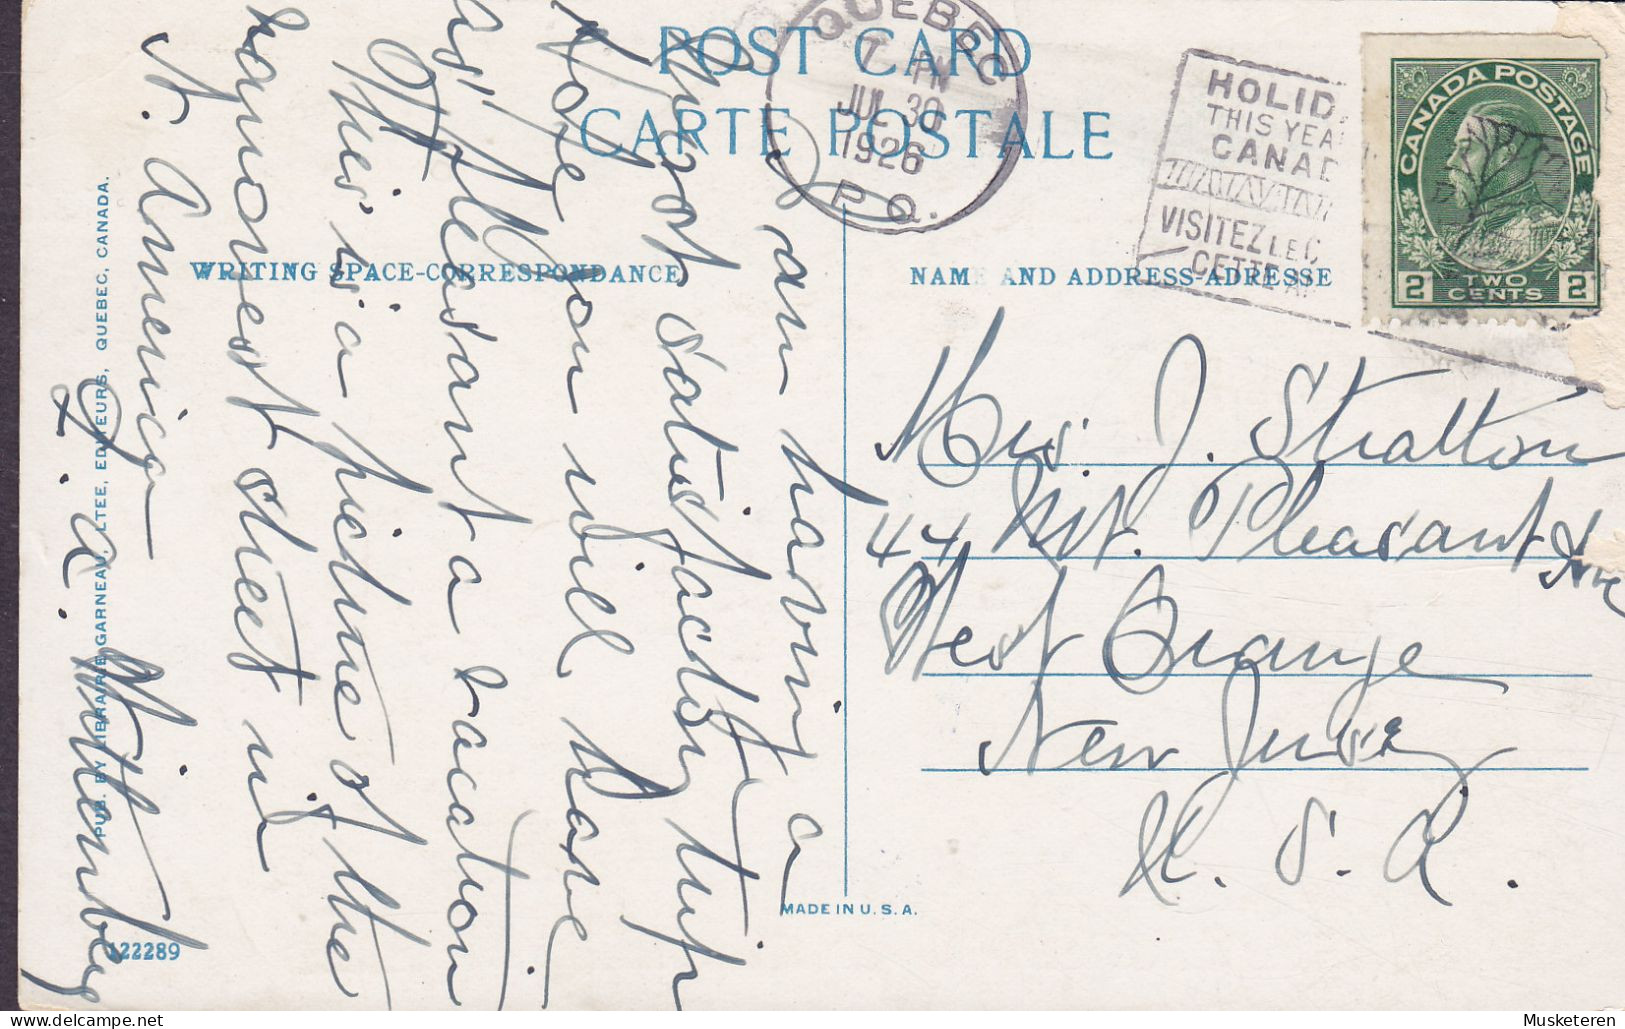 POST CARD
CARTE POSTALE
QUEBEC
7 PM
JUL 30
1926
P.Q.
HOLID
THIS YEA
CANAD
VISITEZ LE C
CETTE A
CANADA POSTAGE
2 TWO CENTS 2
WRITING SPACE-CORRESPONDANCE
NAME AND ADDRESS-ADRESSE
I am having a
most satisfactory trip
Hope you will have
as pleasant a vacation
This is a picture of the
narrowest street in
N. America
G. A. Wittenberg
Mrs. J. Stratton
44 Mt. Pleasant Ave
West Orange
New Jersey
U. S. A.
PUB. BY LIBRAIRIE GARNEAU, LTEE, EDITEURS, QUEBEC, CANADA.
122289
MADE IN U.S.A.
Musketeren on Delcampe.net